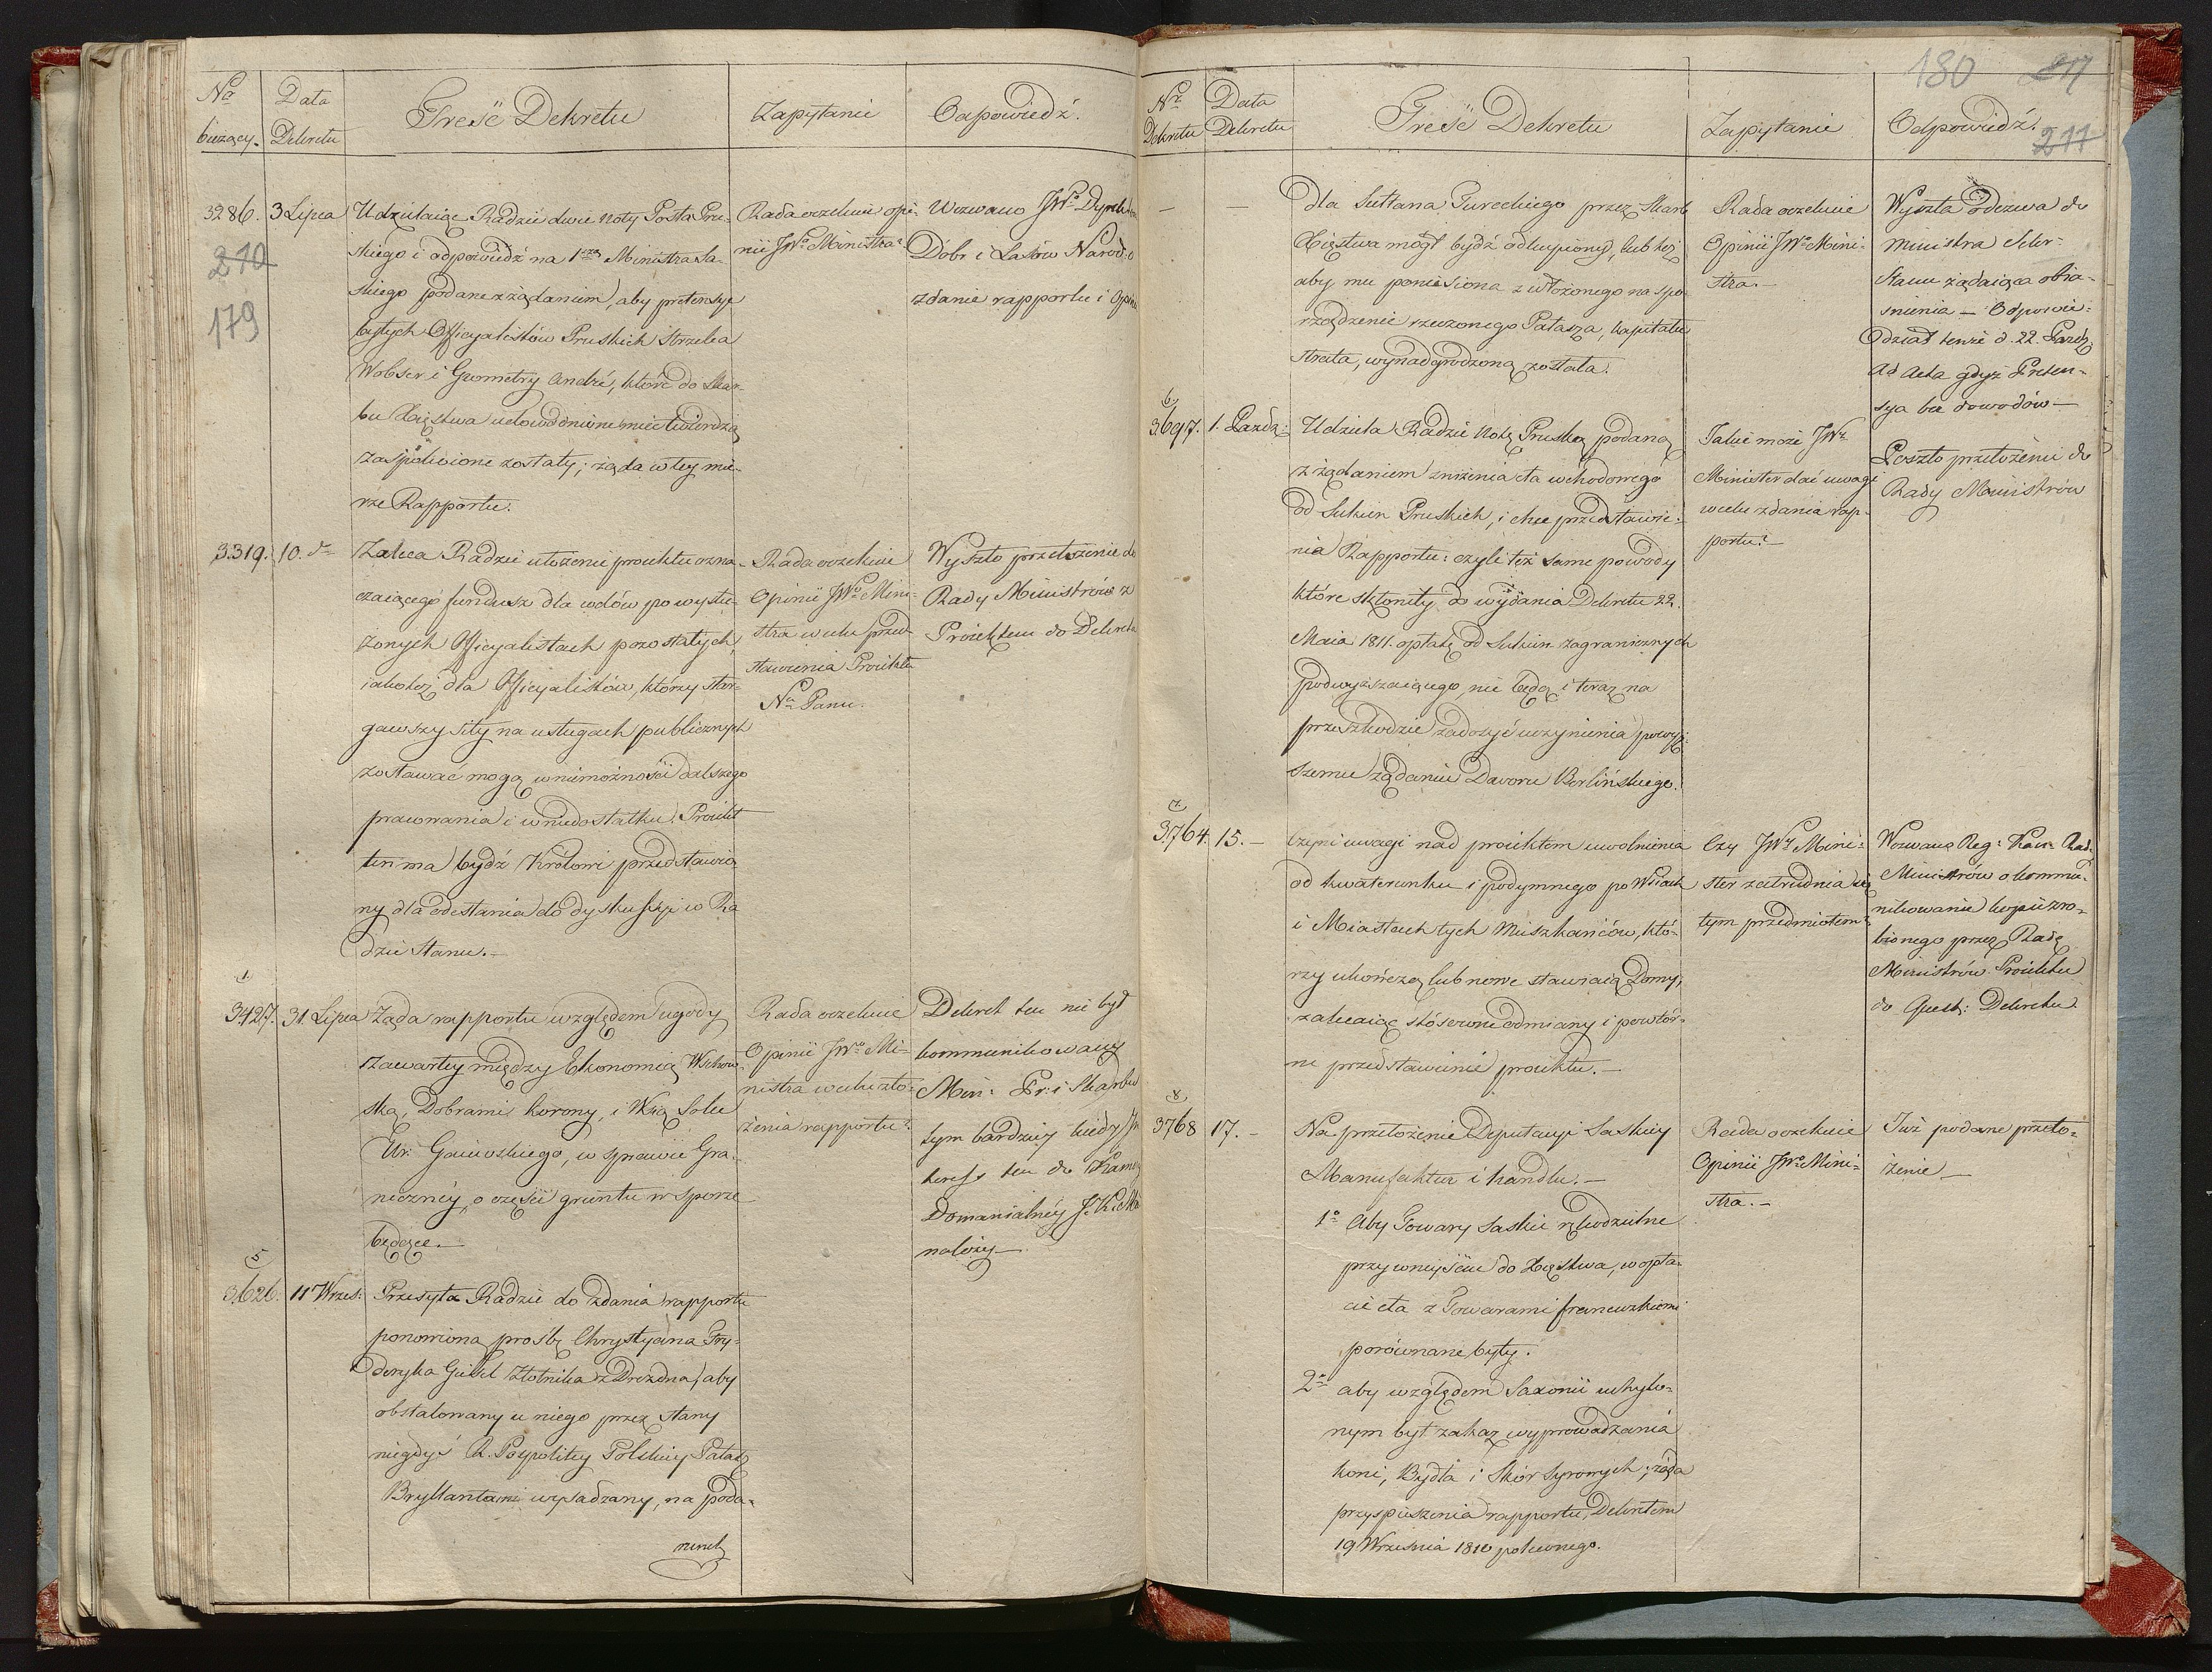 Nr bieżący.
Data Dekretu
Treść Dekretu
Zapytanie
Odpowiedź.
3286.
210
179
3 Lipca
Udzielaiąc Radzie dwie noty Posła Pru-
skiego i odpowiedź na 1szą Ministra Sa-
skiego podane z żądaniem, aby pretensye
byłych Officyalistów Pruskich Strzelca
Wobser i Geometry André, które do Skar-
bu Xięstwa udowodnione mieć twierdzą
zaspokoione zostały; żąda w tey mie-
rze Rapportu.
Rada oczekuie opi-
nii JWo Ministra
Wezwano JWo Dyrekt
Dóbr i Lasów Narod: o
zdanie rapportu i Opinii
3319.
10. do
Zaleca Radzie ułożenie proiektu ozna-
czaiącego fundusz dla wdów po wysłu-
żonych Officyalistach pozostałych,
iakoteż dla Officyalistów, którzy ster-
gawszy siły na usługach publicznych
zostawać mogą w niemożności dalszego
pracowania i w niedostatku. Proiekt
ten ma bydź Królowi przedstawio
ny dla odesłania do dyskussyi w Ra
dzie Stanu.-
Rada oczekuie
Opinii JWo Mini-
stra w celu przed-
stawienia Proiektu
No Panu.
Wyszło przełożenie do
Rady Ministrów z
Proiektem do Dekretu
3427.
31. Lipca
Żąda rapportu względem ugody
zawartey między Ekonomią Wschow-
ską, Dobrami Korony, i Wsią
Ur: w sprawie Gra-
niczney, o części gruntu w sporze
będącę.-
Rada oczekuie
Opinii JWo Mi-
nistra w celu zło-
żenia rapportu.
Dekret ten nie był
kommunikowany
Min: Pr: i Skarbu
tym bardziey kiedy In
teress ten do Kamery
Domanialnéy J. K. Mci
należy-
5
3626.
11 Wrześ:
Przesyła Radzie do zdania rapportu
ponowioną prośbę Chrystyana Fry-
deryka Złotnika z Drezdna, aby
obstalowany u niego przez Stany
niegdyś R. Pospolitey Polskiey Pałasz
Bryllantami wysadzany, na poda-
runek
180
217
211
Nr Dekretu
Data Dekretu
Treść Dekretu
Zapytanie
Odpowiedź.
-
-
dla Sułtana Tureckiego przez Skarb
Xięstwa mógł bydź odkupiony, lub też
aby mu poniesiona z włożonego na spo-
rządzenie rzeczonego Pałasza, kapitału
strata, wynadgrodzoną została.
Rada oczekuie
Opinii JWo Mini-
stra.-
Wyszła odezwa do
Ministra Sekr-
Stanu żądaiąca obia-
śnienia - Odpowie-
dział tenże d. 22. Pazdz.
ad acta gdyż Preten-
sya bez dowodów-
6
3697.
1. Pazdz:
Udziela Radzie Notę Pruską podaną
z żądaniem zniżenia cła wchodowego
od Sukien Pruskich, i chce przedstawie-
nia Rapportu: czyli też same powody
które skłoniły do wydania Dekretu 22.
Maia 1811. opłatę od Sukien zagranicznych
podwyższaiącego, nie będą i teraz na
przeszkodzie zadosyć uczynienia powyż-
szemu żądaniu Dworu Berlińskiego.
Jakie może JWy
Minister dać uwagi
w celu zdania rap-
portu?-
Poszło przełożenie do
Rady Ministrów
7
3764.
15.-
Czyni uwagi nad proiektem uwolnienia
od kwaterunku i podymnego po Wsiach
i Miastach tych Mieszkańców, któ-
rzy ukończą lub nowe stawiaią Domy,
zalecaiąc stósowne odmiany i powtór-
ne przedstawienie proiektu.-
Czy JWy Mini-
ster zatrudnia się
tym przedmiotem?
Wezwano Reg: Kan: Rad:
Ministrów o kommu-
nikowanie kopii zro-
bionego przez Radę
Ministrów Proiektu
do Quest: Dekretu
8
3768
17.-
Na przełożenie Deputacyi Saskiey
Manufaktur i handlu.-
1o Aby Towary Saskie rękodzielne
przy wniyściu do Xięstwa, w opła-
cie cła z Towarami francuzkiemi
porównane były.
2o aby względem Saxonii uchylo-
nym był zakaz wyprowadzania
koni, Bydła i Skór surowych; żąda
przyspieszenia rapportu, Dekretem
19 Września 1810 poleconego.
Rada oczekuie
Opinii JWo Mini-
stra.-
Już podane przeło-
żenie-